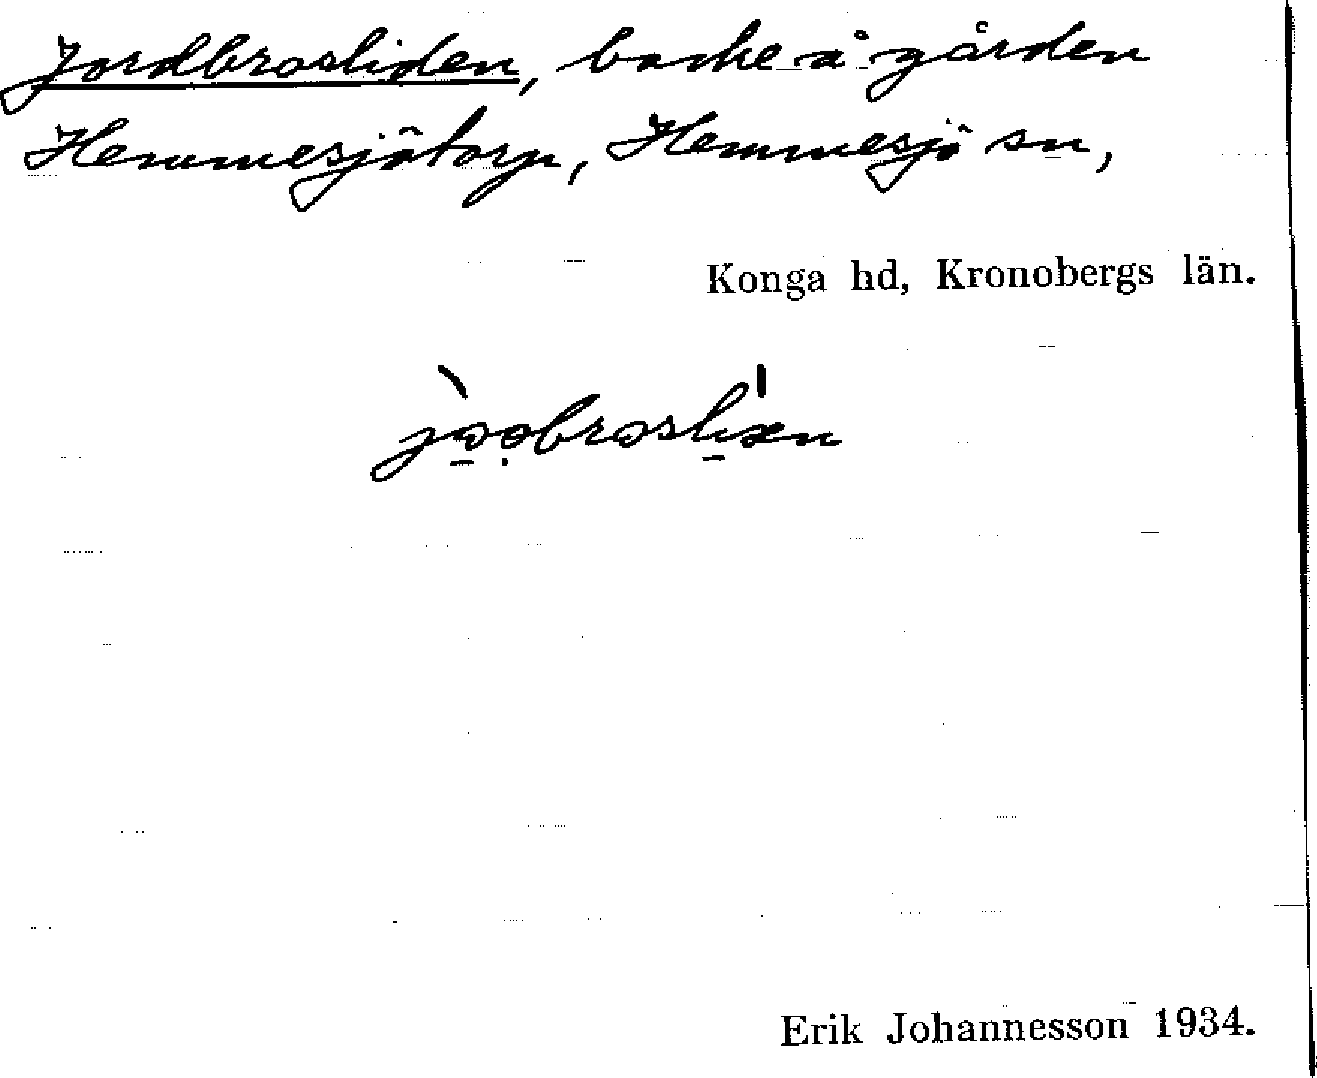 Jordbrosliden, backe å gården
Hemmesjötorp, Hemmesjö sn,
Konga hd, Kronobergs län.
Erik Johannesson 1934.